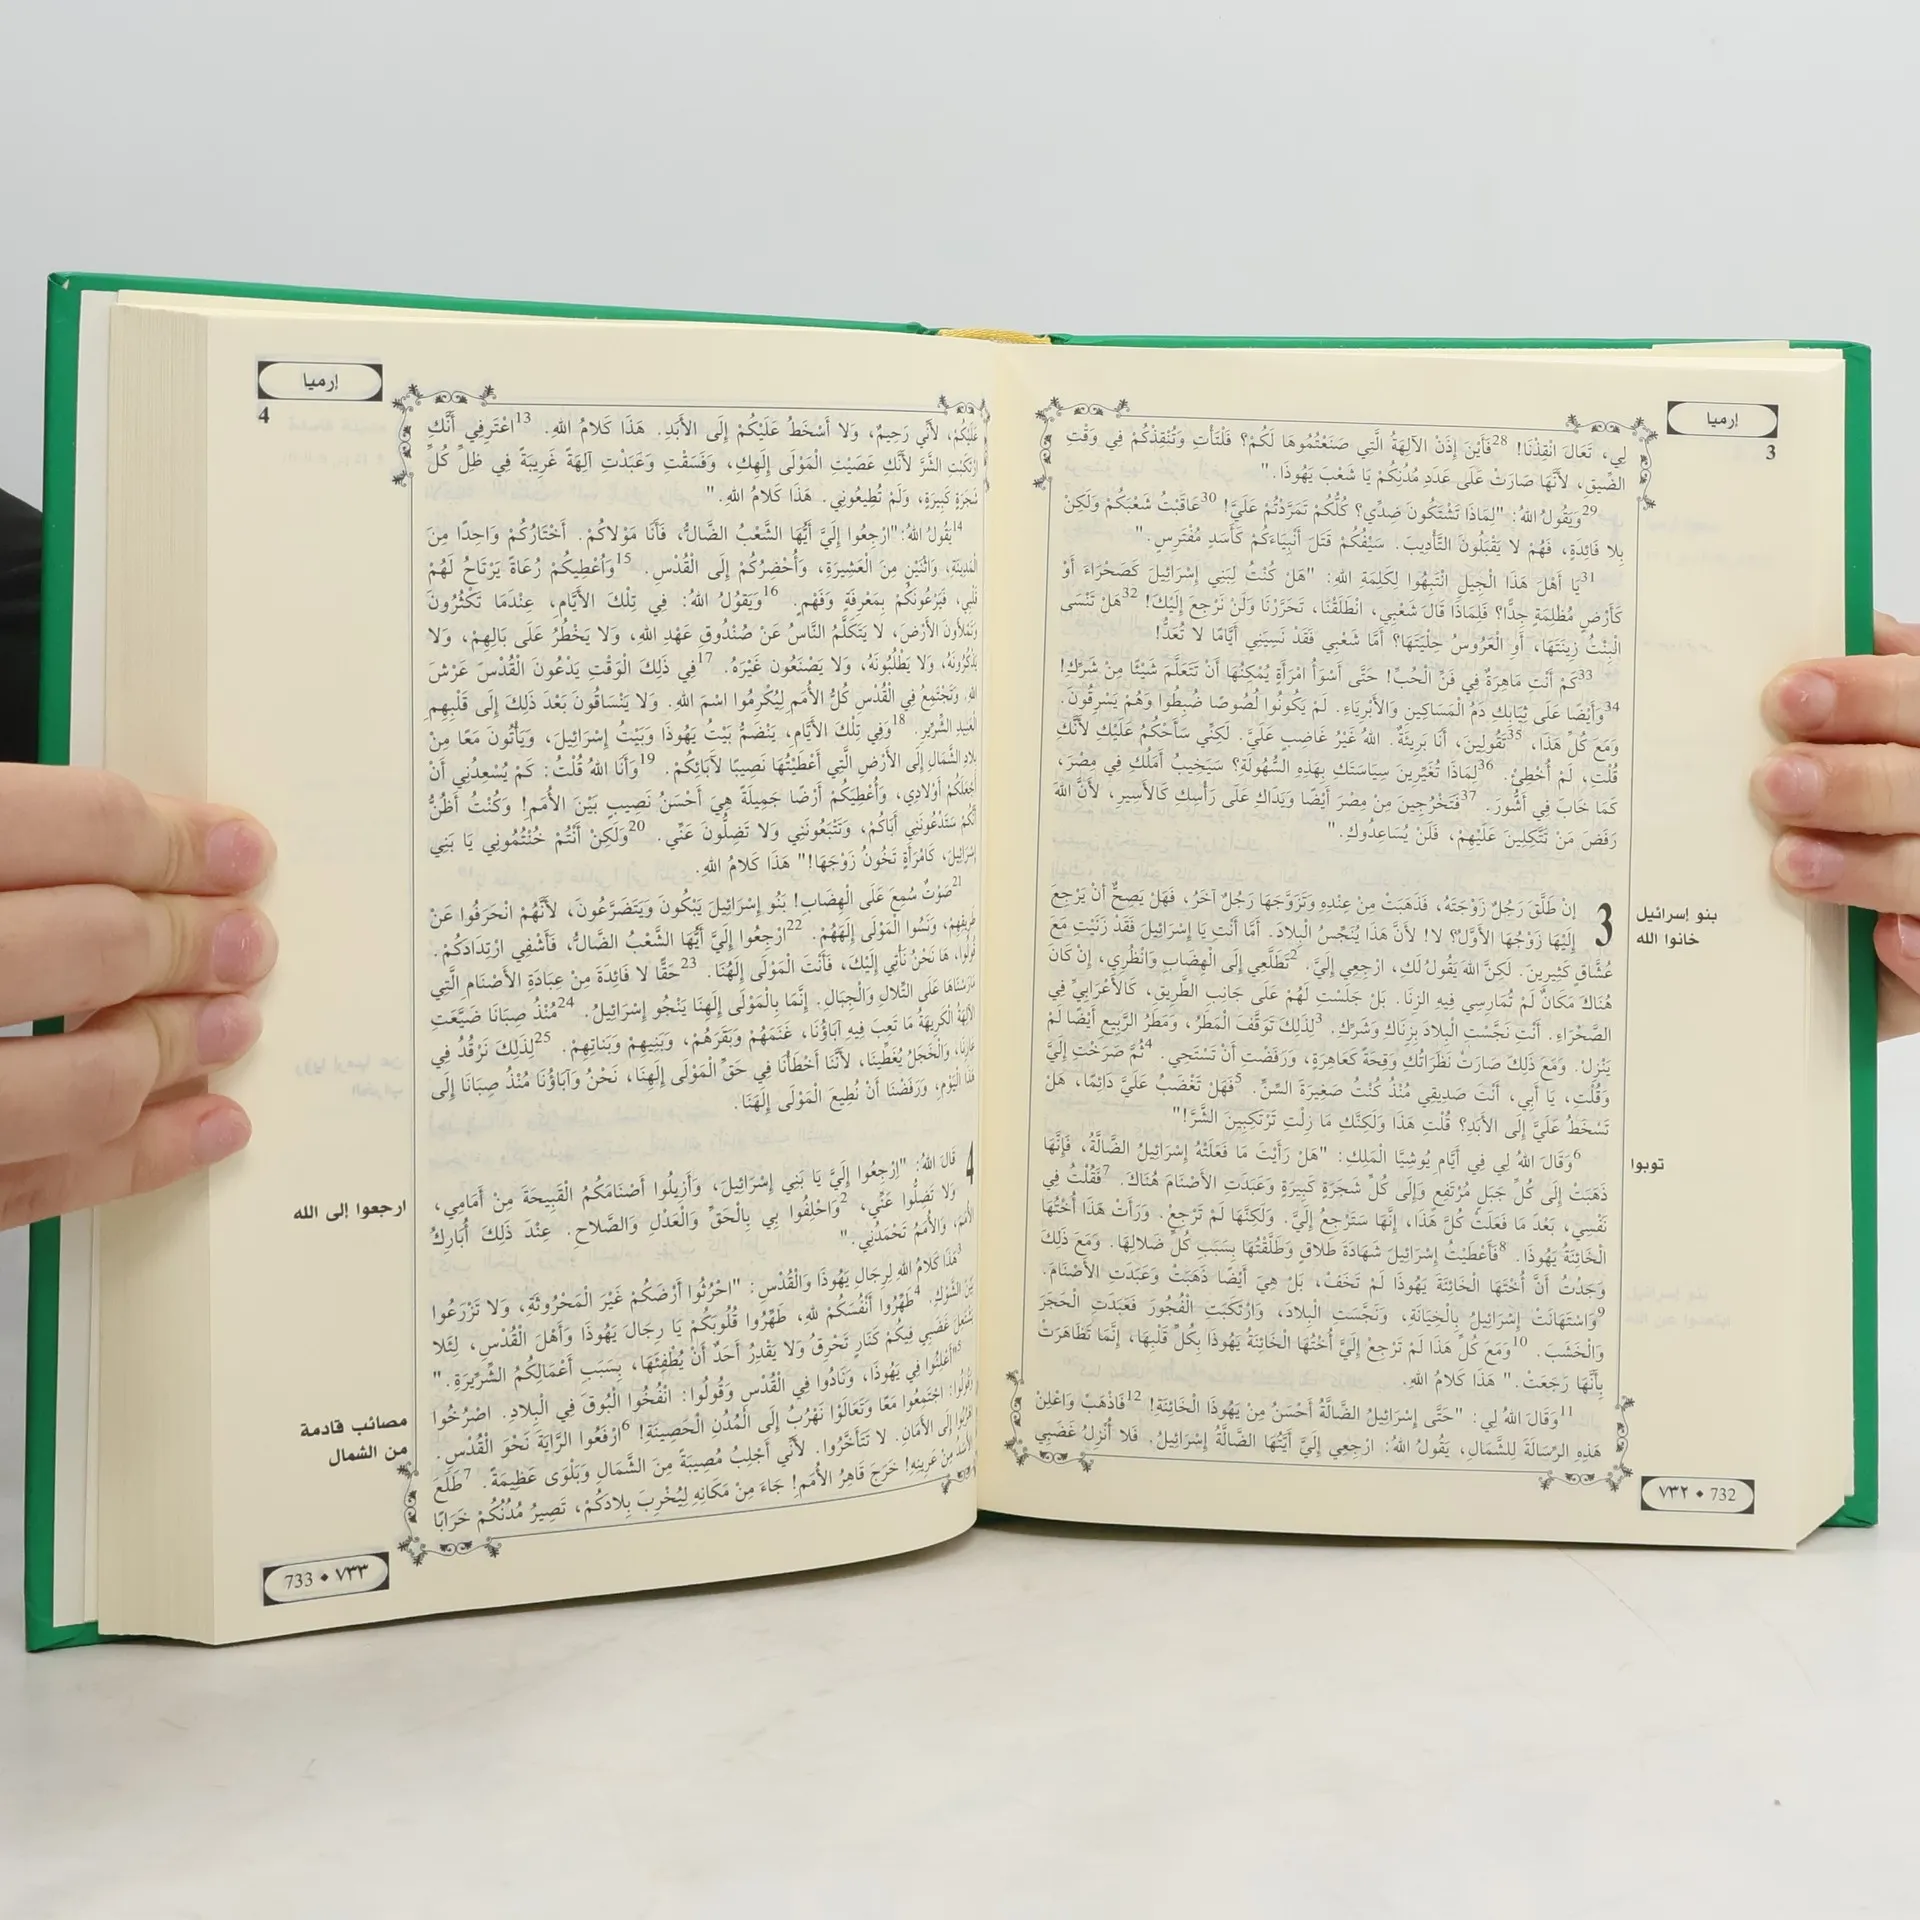 إرميا
3
لِي، تَعَالَ انْقِذْنَا! 28فَأَيْنَ إِذَنْ الآلِهَةُ الَّتِي صَنَعْتُمُوهَا لَكُمْ؟ فَلْتَأْتِ وَتُنْقِذْكُمْ فِي وَقْتِ
الضِّيقِ، لأَنَّهَا صَارَتْ عَلَى عَدَدِ مُدُنِكُمْ يَا شَعْبَ يَهُوذَا."
29وَيَقُولُ اللهُ: "لِمَاذَا تَشْتَكُونَ ضِدِّي؟ كُلُّكُمْ تَمَرَّدْتُمْ عَلَيَّ! 30عَاقَبْتُ شَعْبَكُمْ وَلَكِنْ
بِلا فَائِدَةٍ، فَهُمْ لا يَقْبَلُونَ التَّأْدِيبَ. سَيْفُكُمْ قَتَلَ أَنْبِيَاءَكُمْ كَأَسَدٍ مُفْتَرِسٍ."
31يَا أَهْلَ هَذَا الْجِيلِ انْتَبِهُوا لِكَلِمَةِ اللهِ: "هَلْ كُنْتُ لِبَنِي إِسْرَائِيلَ كَصَحْرَاءَ أَوْ
كَأَرْضٍ مُظْلِمَةٍ جِدًّا؟ فَلِمَاذَا قَالَ شَعْبِي، انْطَلَقْنَا، تَحَرَّرْنَا وَلَنْ نَرْجِعَ إِلَيْكَ! 32هَلْ تَنْسَى
الْبِنْتُ زِينَتَهَا، أَوِ الْعَرُوسُ حِلْيَتَهَا؟ أَمَّا شَعْبِي فَقَدْ نَسِيَنِي أَيَّامًا لا تُعَدُّ!
33كَمْ أَنْتِ مَاهِرَةٌ فِي فَنِّ الْحُبِّ! حَتَّى أَسْوَأُ امْرَأَةٍ يُمْكِنُهَا أَنْ تَتَعَلَّمَ شَيْئًا مِنْ شَرِّكِ!
34وَأَيْضًا عَلَى ثِيَابِكِ دَمُ الْمَسَاكِينِ وَالأَبْرِيَاءِ. لَمْ يَكُونُوا لُصُوصًا ضُبِطُوا وَهُمْ يَسْرِقُونَ.
وَمَعَ كُلِّ هَذَا، 35تَقُولِينَ، أَنَا بَرِيئَةٌ. اللهُ غَيْرُ غَاضِبٍ عَلَيَّ. لَكِنِّي سَأَحْكُمُ عَلَيْكِ لأَنَّكِ
قُلْتِ، لَمْ أُخْطِئْ. 36لِمَاذَا تُغَيِّرِينَ سِيَاسَتَكِ بِهَذِهِ السُّهُولَةِ؟ سَيَخِيبُ أَمَلُكِ فِي مِصْرَ،
كَمَا خَابَ فِي أَشُّورَ. 37فَتَخْرُجِينَ مِنْ مِصْرَ أَيْضًا وَيَدَاكِ عَلَى رَأْسِكِ كَالأَسِيرِ، لأَنَّ اللهَ
رَفَضَ مَنْ تَتَّكِلِينَ عَلَيْهِمْ، فَلَنْ يُسَاعِدُوكِ."
بنو إسرائيل
خانوا الله
3 إِنْ طَلَّقَ رَجُلٌ زَوْجَتَهُ، فَذَهَبَتْ مِنْ عِنْدِهِ وَتَزَوَّجَهَا رَجُلٌ آخَرُ، فَهَلْ يَصِحُّ أَنْ يَرْجِعَ
إِلَيْهَا زَوْجُهَا الأَوَّلُ؟ لا! لأَنَّ هَذَا يُنَجِّسُ الْبِلادَ. أَمَّا أَنْتِ يَا إِسْرَائِيلُ فَقَدْ زَنَيْتِ مَعَ
عُشَّاقٍ كَثِيرِينَ. لَكِنَّ اللهَ يَقُولُ لَكِ، ارْجِعِي إِلَيَّ. 2تَطَلَّعِي إِلَى الْهِضَابِ وَانْظُرِي، إِنْ كَانَ
هُنَاكَ مَكَانٌ لَمْ تُمَارِسِي فِيهِ الزِنَا. بَلْ جَلَسْتِ لَهُمْ عَلَى جَانِبِ الطَّرِيقِ، كَالأَعْرَابِيِّ فِي
الصَّحْرَاءِ. أَنْتِ نَجَّسْتِ الْبِلادَ بِزِنَاكِ وَشَرِّكِ. 3لِذَلِكَ تَوَقَّفَ الْمَطَرُ، وَمَطَرُ الرَّبِيعِ أَيْضًا لَمْ
يَنْزِلْ. وَمَعَ ذَلِكَ صَارَتْ نَظَرَاتُكِ وَقِحَةً كَعَاهِرَةٍ، وَرَفَضْتِ أَنْ تَسْتَحِي. 4ثُمَّ صَرَخْتِ إِلَيَّ
وَقُلْتِ، يَا أَبِي، أَنْتَ صَدِيقِي مُنْذُ كُنْتُ صَغِيرَةَ السِّنِّ. 5فَهَلْ تَغْضَبُ عَلَيَّ دَائِمًا، هَلْ
تَسْخَطُ عَلَيَّ إِلَى الأَبَدِ؟ قُلْتِ هَذَا وَلَكِنَّكِ مَا زِلْتِ تَرْتَكِبِينَ الشَّرَّ!"
توبوا
6وَقَالَ اللهُ لِي فِي أَيَّامِ يُوشِيَّا الْمَلِكِ: "هَلْ رَأَيْتَ مَا فَعَلَتْهُ إِسْرَائِيلُ الضَّالَّةُ، فَإِنَّهَا
ذَهَبَتْ إِلَى كُلِّ جَبَلٍ مُرْتَفِعٍ وَإِلَى كُلِّ شَجَرَةٍ كَبِيرَةٍ وَعَبَدَتِ الأَصْنَامَ هُنَاكَ. 7فَقُلْتُ فِي
نَفْسِي، بَعْدَ مَا فَعَلَتْ كُلَّ هَذَا، إِنَّهَا سَتَرْجِعُ إِلَيَّ. وَلَكِنَّهَا لَمْ تَرْجِعْ. وَرَأَتْ هَذَا أُخْتُهَا
الْخَائِنَةُ يَهُوذَا. 8فَأَعْطَيْتُ إِسْرَائِيلَ شَهَادَةَ طَلاقٍ وَطَلَّقْتُهَا بِسَبَبِ كُلِّ ضَلالِهَا. وَمَعَ ذَلِكَ
وَجَدْتُ أَنَّ أُخْتَهَا الْخَائِنَةَ يَهُوذَا لَمْ تَخَفْ، بَلْ هِيَ أَيْضًا ذَهَبَتْ وَعَبَدَتِ الأَصْنَامَ.
9وَاسْتَهَانَتْ إِسْرَائِيلُ بِالْخِيَانَةِ، وَنَجَّسَتِ الْبِلادَ، وَارْتَكَبَتِ الْفُجُورَ فَعَبَدَتِ الْحَجَرَ
وَالْخَشَبَ. 10وَمَعَ كُلِّ هَذَا لَمْ تَرْجِعْ إِلَيَّ أُخْتُهَا الْخَائِنَةُ يَهُوذَا بِكُلِّ قَلْبِهَا، إِنَّمَا تَظَاهَرَتْ
بِأَنَّهَا رَجَعَتْ." هَذَا كَلامُ اللهِ.
11وَقَالَ اللهُ لِي: "حَتَّى إِسْرَائِيلُ الضَّالَّةُ أَحْسَنُ مِنْ يَهُوذَا الْخَائِنَةِ! 12فَاذْهَبْ وَاعْلِنْ
هَذِهِ الرِّسَالَةَ لِلشَّمَالِ، يَقُولُ اللهُ: ارْجِعِي إِلَيَّ أَيَّتُهَا الضَّالَّةُ إِسْرَائِيلُ. فَلا أُنْزِلُ غَضَبِي
٧٣٢ • 732
إرميا
4
عَلَيْكُمْ، لأَنِّي رَحِيمٌ، وَلا أَسْخَطُ عَلَيْكُمْ إِلَى الأَبَدِ. هَذَا كَلامُ اللهِ. 13اعْتَرِفِي أَنَّكِ
ارْتَكَبْتِ الشَّرَّ لأَنَّكِ عَصَيْتِ الْمَوْلَى إِلَهَكِ، وَفَسَقْتِ وَعَبَدْتِ آلِهَةً غَرِيبَةً فِي ظِلِّ كُلِّ
شَجَرَةٍ كَبِيرَةٍ، وَلَمْ تُطِيعُونِي. هَذَا كَلامُ اللهِ."
14يَقُولُ اللهُ: "ارْجِعُوا إِلَيَّ أَيُّهَا الشَّعْبُ الضَّالُّ، فَأَنَا مَوْلاكُمْ. أَخْتَارُكُمْ وَاحِدًا مِنَ
الْمَدِينَةِ، وَاثْنَيْنِ مِنَ الْعَشِيرَةِ، وَأُحْضِرُكُمْ إِلَى الْقُدْسِ. 15وَأُعْطِيكُمْ رُعَاةً يَرْتَاحُ لَهُمْ
قَلْبِي، فَيَرْعُونَكُمْ بِمَعْرِفَةٍ وَفَهْمٍ. 16وَيَقُولُ اللهُ: فِي تِلْكَ الأَيَّامِ، عِنْدَمَا تَكْثُرُونَ
وَتَمْلأُونَ الأَرْضَ، لا يَتَكَلَّمُ النَّاسُ عَنْ صُنْدُوقِ عَهْدِ اللهِ، وَلا يَخْطُرُ عَلَى بَالِهِمْ، وَلا
يَذْكُرُونَهُ، وَلا يَطْلُبُونَهُ، وَلا يَصْنَعُونَ غَيْرَهُ. 17فِي ذَلِكَ الْوَقْتِ يَدْعُونَ الْقُدْسَ عَرْشَ
اللهِ، وَتَجْتَمِعُ فِي الْقُدْسِ كُلُّ الأُمَمِ لِيُكْرِمُوا اسْمَ اللهِ. وَلا يَنْسَاقُونَ بَعْدَ ذَلِكَ إِلَى قَلْبِهِمِ
الْعَنِيدِ الشِّرِّيرِ. 18وَفِي تِلْكَ الأَيَّامِ، يَنْضَمُّ بَيْتُ يَهُوذَا وَبَيْتُ إِسْرَائِيلَ، وَيَأْتُونَ مَعًا مِنْ
بِلادِ الشَّمَالِ إِلَى الأَرْضِ الَّتِي أَعْطَيْتُهَا نَصِيبًا لآبَائِكُمْ. 19وَأَنَا اللهُ قُلْتُ: كَمْ يُسْعِدُنِي أَنْ
أَجْعَلَكُمْ أَوْلادِي، وَأُعْطِيَكُمْ أَرْضًا جَمِيلَةً هِيَ أَحْسَنُ نَصِيبٍ بَيْنَ الأُمَمِ! وَكُنْتُ أَظُنُّ
أَنَّكُمْ سَتَدْعُونَنِي أَبَاكُمْ، وَتَتْبَعُونَنِي وَلا تَضِلُّونَ عَنِّي. 20وَلَكِنْ أَنْتُمْ خُنْتُمُونِي يَا بَنِي
إِسْرَائِيلَ، كَامْرَأَةٍ تَخُونُ زَوْجَهَا!" هَذَا كَلامُ اللهِ.
21صَوْتٌ سُمِعَ عَلَى الْهِضَابِ! بَنُو إِسْرَائِيلَ يَبْكُونَ وَيَتَضَرَّعُونَ، لأَنَّهُمْ انْحَرَفُوا عَنْ
طَرِيقِهِمْ، وَنَسُوا الْمَوْلَى إِلَهَهُمْ. 22ارْجِعُوا إِلَيَّ أَيُّهَا الشَّعْبُ الضَّالُّ، فَأَشْفِي ارْتِدَادَكُمْ.
قُولُوا، هَا نَحْنُ نَأْتِي إِلَيْكَ، فَأَنْتَ الْمَوْلَى إِلَهُنَا. 23حَقًّا لا فَائِدَةَ مِنْ عِبَادَةِ الأَصْنَامِ الَّتِي
مَارَسْنَاهَا عَلَى التِّلالِ وَالْجِبَالِ. إِنَّمَا بِالْمَوْلَى إِلَهِنَا يَنْجُو إِسْرَائِيلُ. 24مُنْذُ صِبَانَا ضَيَّعَتِ
الآلِهَةُ الْكَرِيهَةُ مَا تَعِبَ فِيهِ آبَاؤُنَا، غَنَمَهُمْ وَبَقَرَهُمْ، وَبَنِيهِمْ وَبَنَاتِهِمْ. 25لِذَلِكَ نَرْقُدُ فِي
عَارِنَا، وَالْخَجَلُ يُغَطِّينَا، لأَنَّنَا أَخْطَأْنَا فِي حَقِّ الْمَوْلَى إِلَهِنَا، نَحْنُ وَآبَاؤُنَا مُنْذُ صِبَانَا إِلَى
هَذَا الْيَوْمِ، وَرَفَضْنَا أَنْ نُطِيعَ الْمَوْلَى إِلَهَنَا.
ارجعوا إلى الله
4 قَالَ اللهُ: "اِرْجِعُوا إِلَيَّ يَا بَنِي إِسْرَائِيلَ، وَأَزِيلُوا أَصْنَامَكُمُ الْقَبِيحَةَ مِنْ أَمَامِي،
وَلا تَضِلُّوا عَنِّي، 2وَاحْلِفُوا بِي بِالْحَقِّ وَالْعَدْلِ وَالصَّلاحِ. عِنْدَ ذَلِكَ أُبَارِكُ
الأُمَمَ، وَالأُمَمُ تَحْمَدُنِي."
3هَذَا كَلامُ اللهِ لِرِجَالِ يَهُوذَا وَالْقُدْسِ: "احْرُثُوا أَرْضَكُمْ غَيْرَ الْمَحْرُوثَةِ، وَلا تَزْرَعُوا
بَيْنَ الشَّوْكِ. 4طَهِّرُوا أَنْفُسَكُمْ لِلَّهِ، طَهِّرُوا قُلُوبَكُمْ يَا رِجَالَ يَهُوذَا وَأَهْلَ الْقُدْسِ، لِئَلا
يَشْتَعِلَ غَضَبِي فِيكُمْ كَنَارٍ تَحْرِقُ وَلا يَقْدِرُ أَحَدٌ أَنْ يُطْفِئَهَا، بِسَبَبِ أَعْمَالِكُمُ الشِّرِّيرَةِ."
مصائب قادمة
من الشمال
5"أَعْلِنُوا فِي يَهُوذَا، وَنَادُوا فِي الْقُدْسِ وَقُولُوا: انْفُخُوا الْبُوقَ فِي الْبِلادِ. اصْرُخُوا
وَقُولُوا: اجْتَمِعُوا مَعًا وَتَعَالَوْا نَهْرُبُ إِلَى الْمُدُنِ الْحَصِينَةِ! 6ارْفَعُوا الرَّايَةَ نَحْوَ الْقُدْسِ.
اهْرُبُوا إِلَى الأَمَانِ. لا تَتَأَخَّرُوا. لأَنِّي أَجْلِبُ مُصِيبَةً مِنَ الشَّمَالِ وَبَلْوَى عَظِيمَةً. 7طَلَعَ
الأَسَدُ مِنْ عَرِينِهِ! خَرَجَ قَاهِرُ الأُمَمِ! جَاءَ مِنْ مَكَانِهِ لِيُخْرِبَ بِلادَكُمْ، تَصِيرُ مُدُنُكُمْ خَرَابًا
733 • ٧٣٣